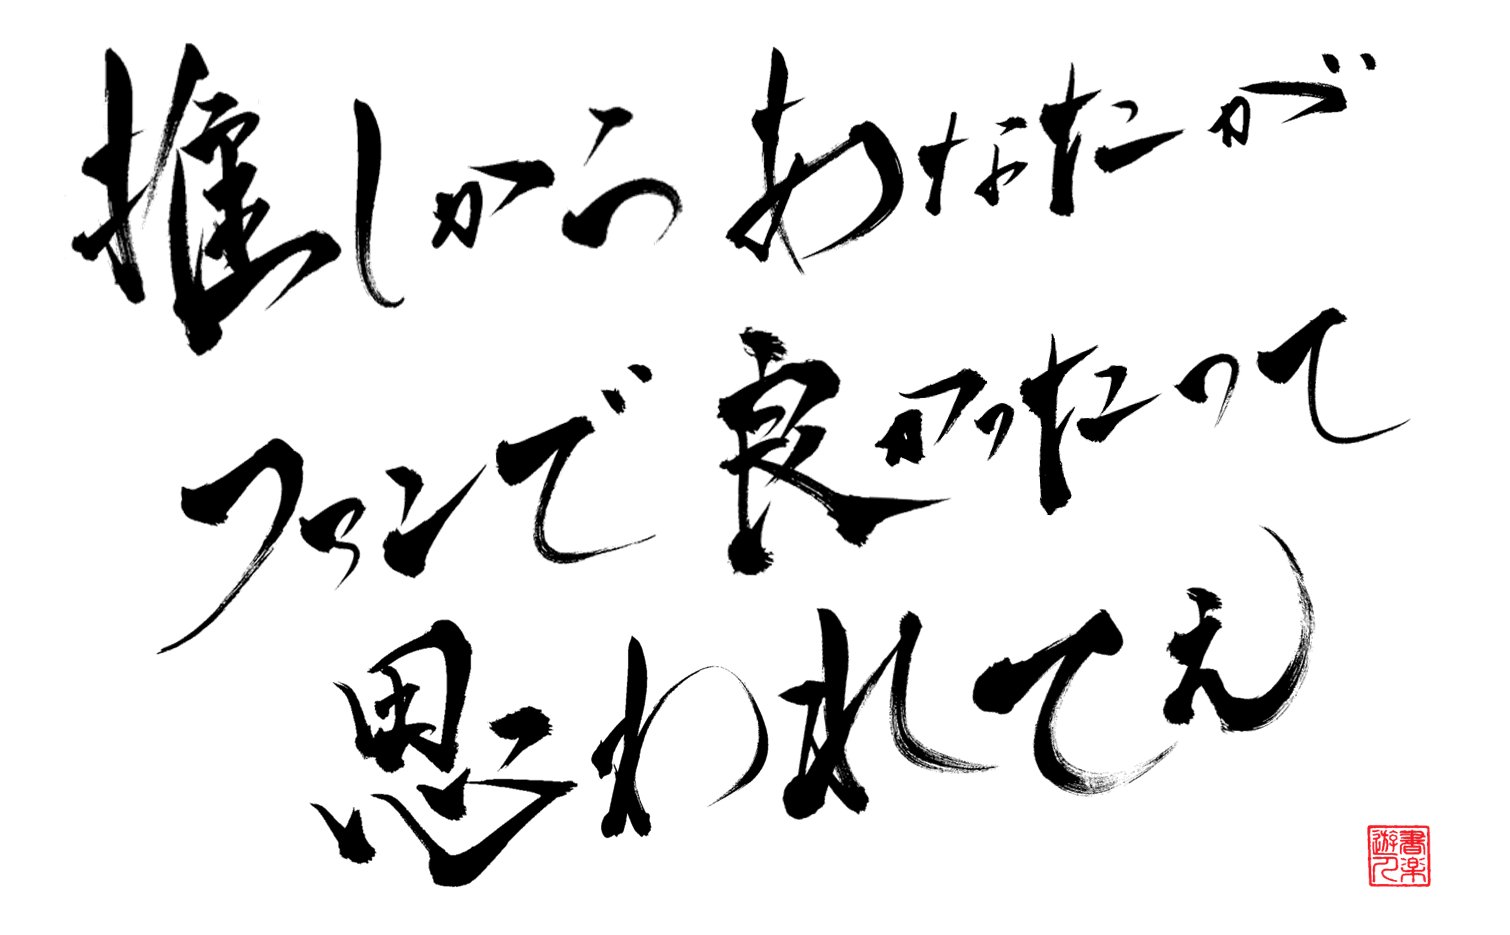 推しから あなたが
ファンで 良かったって
思われてえ
書楽
遊人